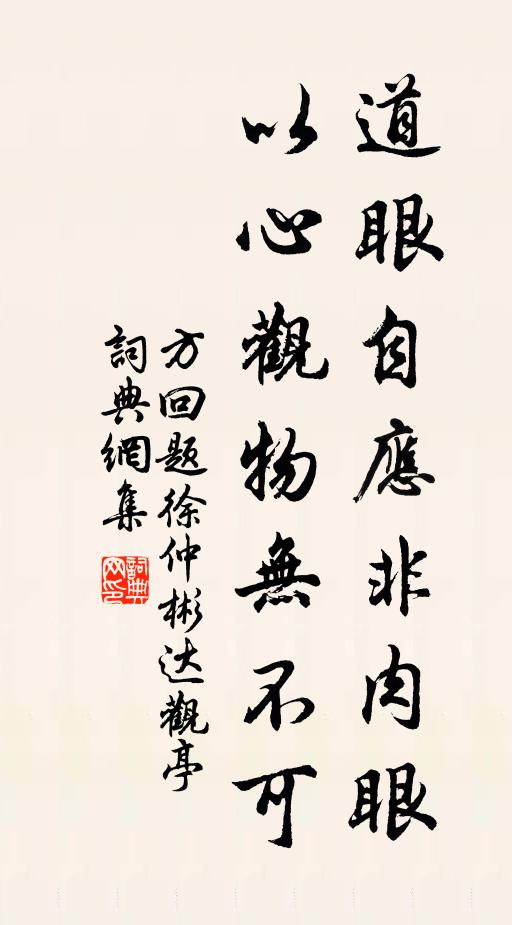 道眼自應非肉眼
以心觀物無不可
方回题徐仲彬达觀亭
詞典網集
詞典网印